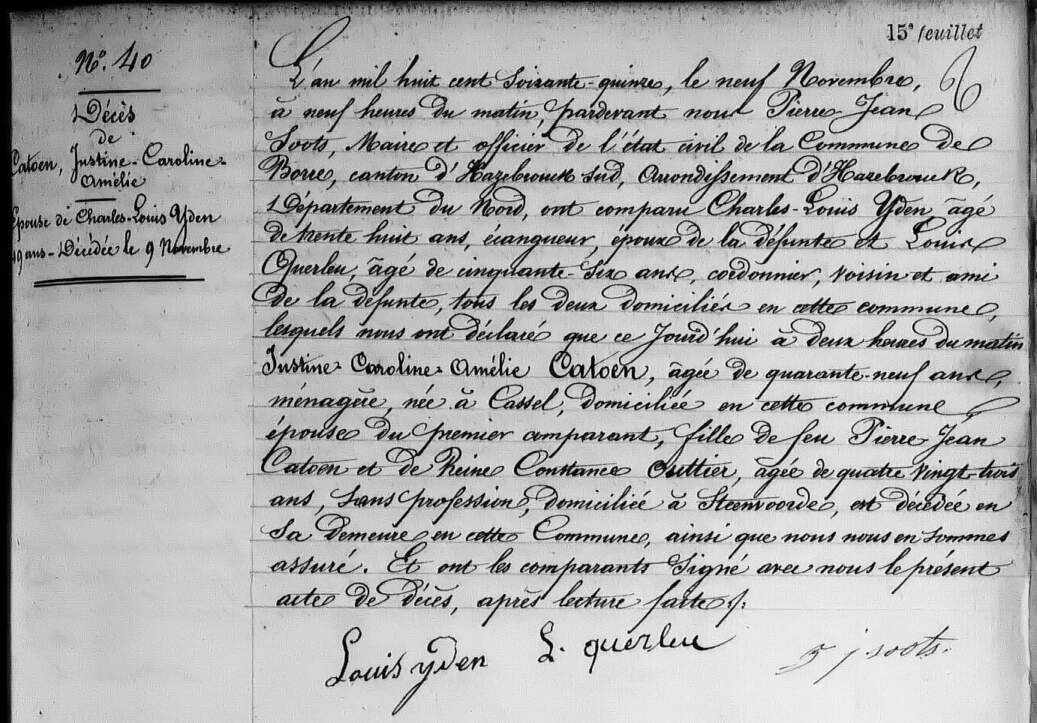 15e feuillet
No. 40
Décès
de
Catoen, Justine-Caroline-
Amélie
Epouse de Charles-Louis Yden
49 ans - Décédée le 9 Novembre
L'an mil huit cent soixante-quinze, le neuf Novembre,
à neuf heures du matin, pardevant nous Pierre Jean
Soots, Maire et officier de l'état civil de la Commune de
Borre, canton d'Hazebrouck Sud, Arrondissement d'Hazebrouck,
Département du Nord, ont comparu Charles-Louis Yden, âgé
de trente huit ans, écangueur, époux de la défunte et Louis
Querleu, âgé de cinquante-six ans, cordonnier, voisin et ami
de la défunte, tous les deux domiciliés en cette commune,
lesquels nous ont déclaré que ce Jourd'hui à deux heures du matin
Justine-Caroline-Amélie Catoen, âgée de quarante-neuf ans,
ménagère, née à Cassel, domiciliée en cette commune
épouse du premier comparant, fille de feu Pierre Jean
Catoen et de Reine Constance Outtier, âgée de quatre vingt-trois
ans, sans profession, domiciliée à Steenvoorde, est décédée en
sa demeure en cette Commune, ainsi que nous nous en sommes
assuré. Et ont les comparants signé avec nous le présent
acte de décès, après lecture faite ./.
Louis yden L. querleu p j soots.